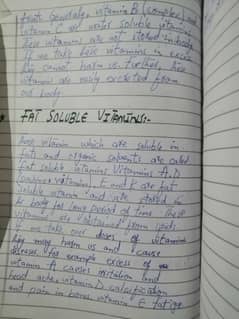 vitamin B (complex) and
vitamin C are water soluble vitamins
these vitamins are not stored in body
if we take these vitamins in excess
it cannot harm us. further, these
vitamins are easily excreted from
our body.
• FAT SOLUBLE VITAMINS:-
Those vitamin which are soluble in
fats and organic solvents are called
fat soluble vitamins Vitamins A, D
vitamins, E and K are fat
Soluble vitamin and are stored in
body for long period of time These
vitamins are obtained from lipids
if we take over doses of vitamins
they may harm us and cause
diseases, for example excess of
vitamin A causes irritation and
head ache, vitamin D calcification
and pain in bones, vitamin E fatigue